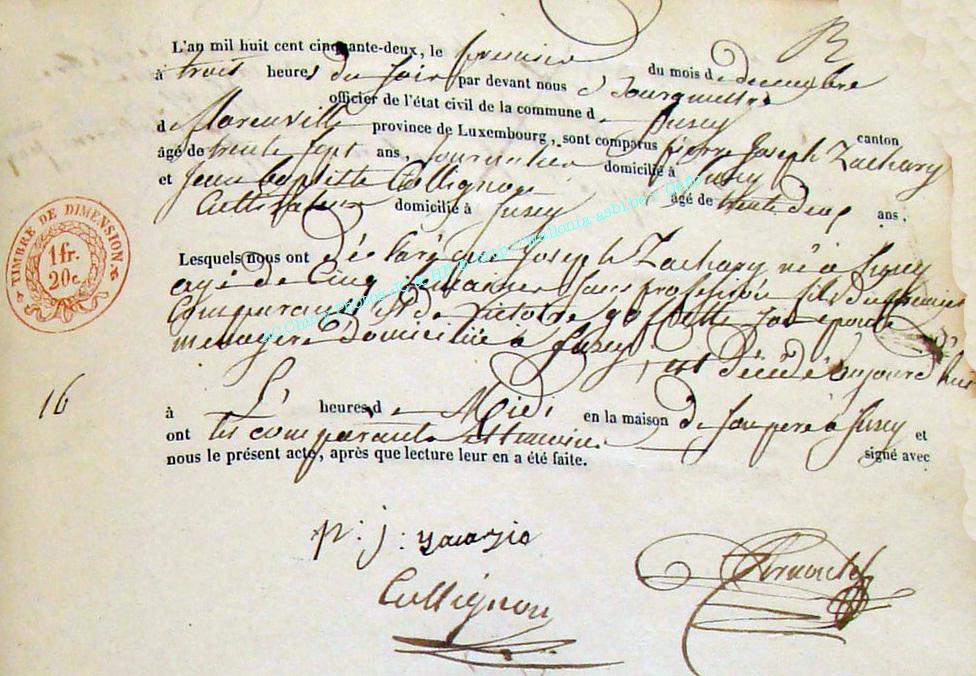 L'an mil huit cent cinquante-deux, le premier du mois de decembre
à trois heures du soir par devant nous Bourgmestre
officier de l'état civil de la commune de Jusey canton
de florenville province de Luxembourg, sont comparus pierre Joseph Zachary
âgé de trente sept ans, Journalier domicilié à Jusey
et Jean baptiste Collignon âgé de trente deux ans,
Cultivateur domicilié à Jusey
Lesquels nous ont déclaré que Joseph Zachary né à
agé de Cinq Semaines Sans profession fils du premier
Comparant et de Victoire gofette son epouse
menagere Domiciliée à Jusey
est décédé aujourd'hui
16
à heures de Midi en la maison de Son pere à Jusey et
ont les comparants et temoins signé avec
nous le présent acte, après que lecture leur en a été faite.
TIMBRE DE DIMENSION
1 fr.
20 c.
p : j :
Collignon